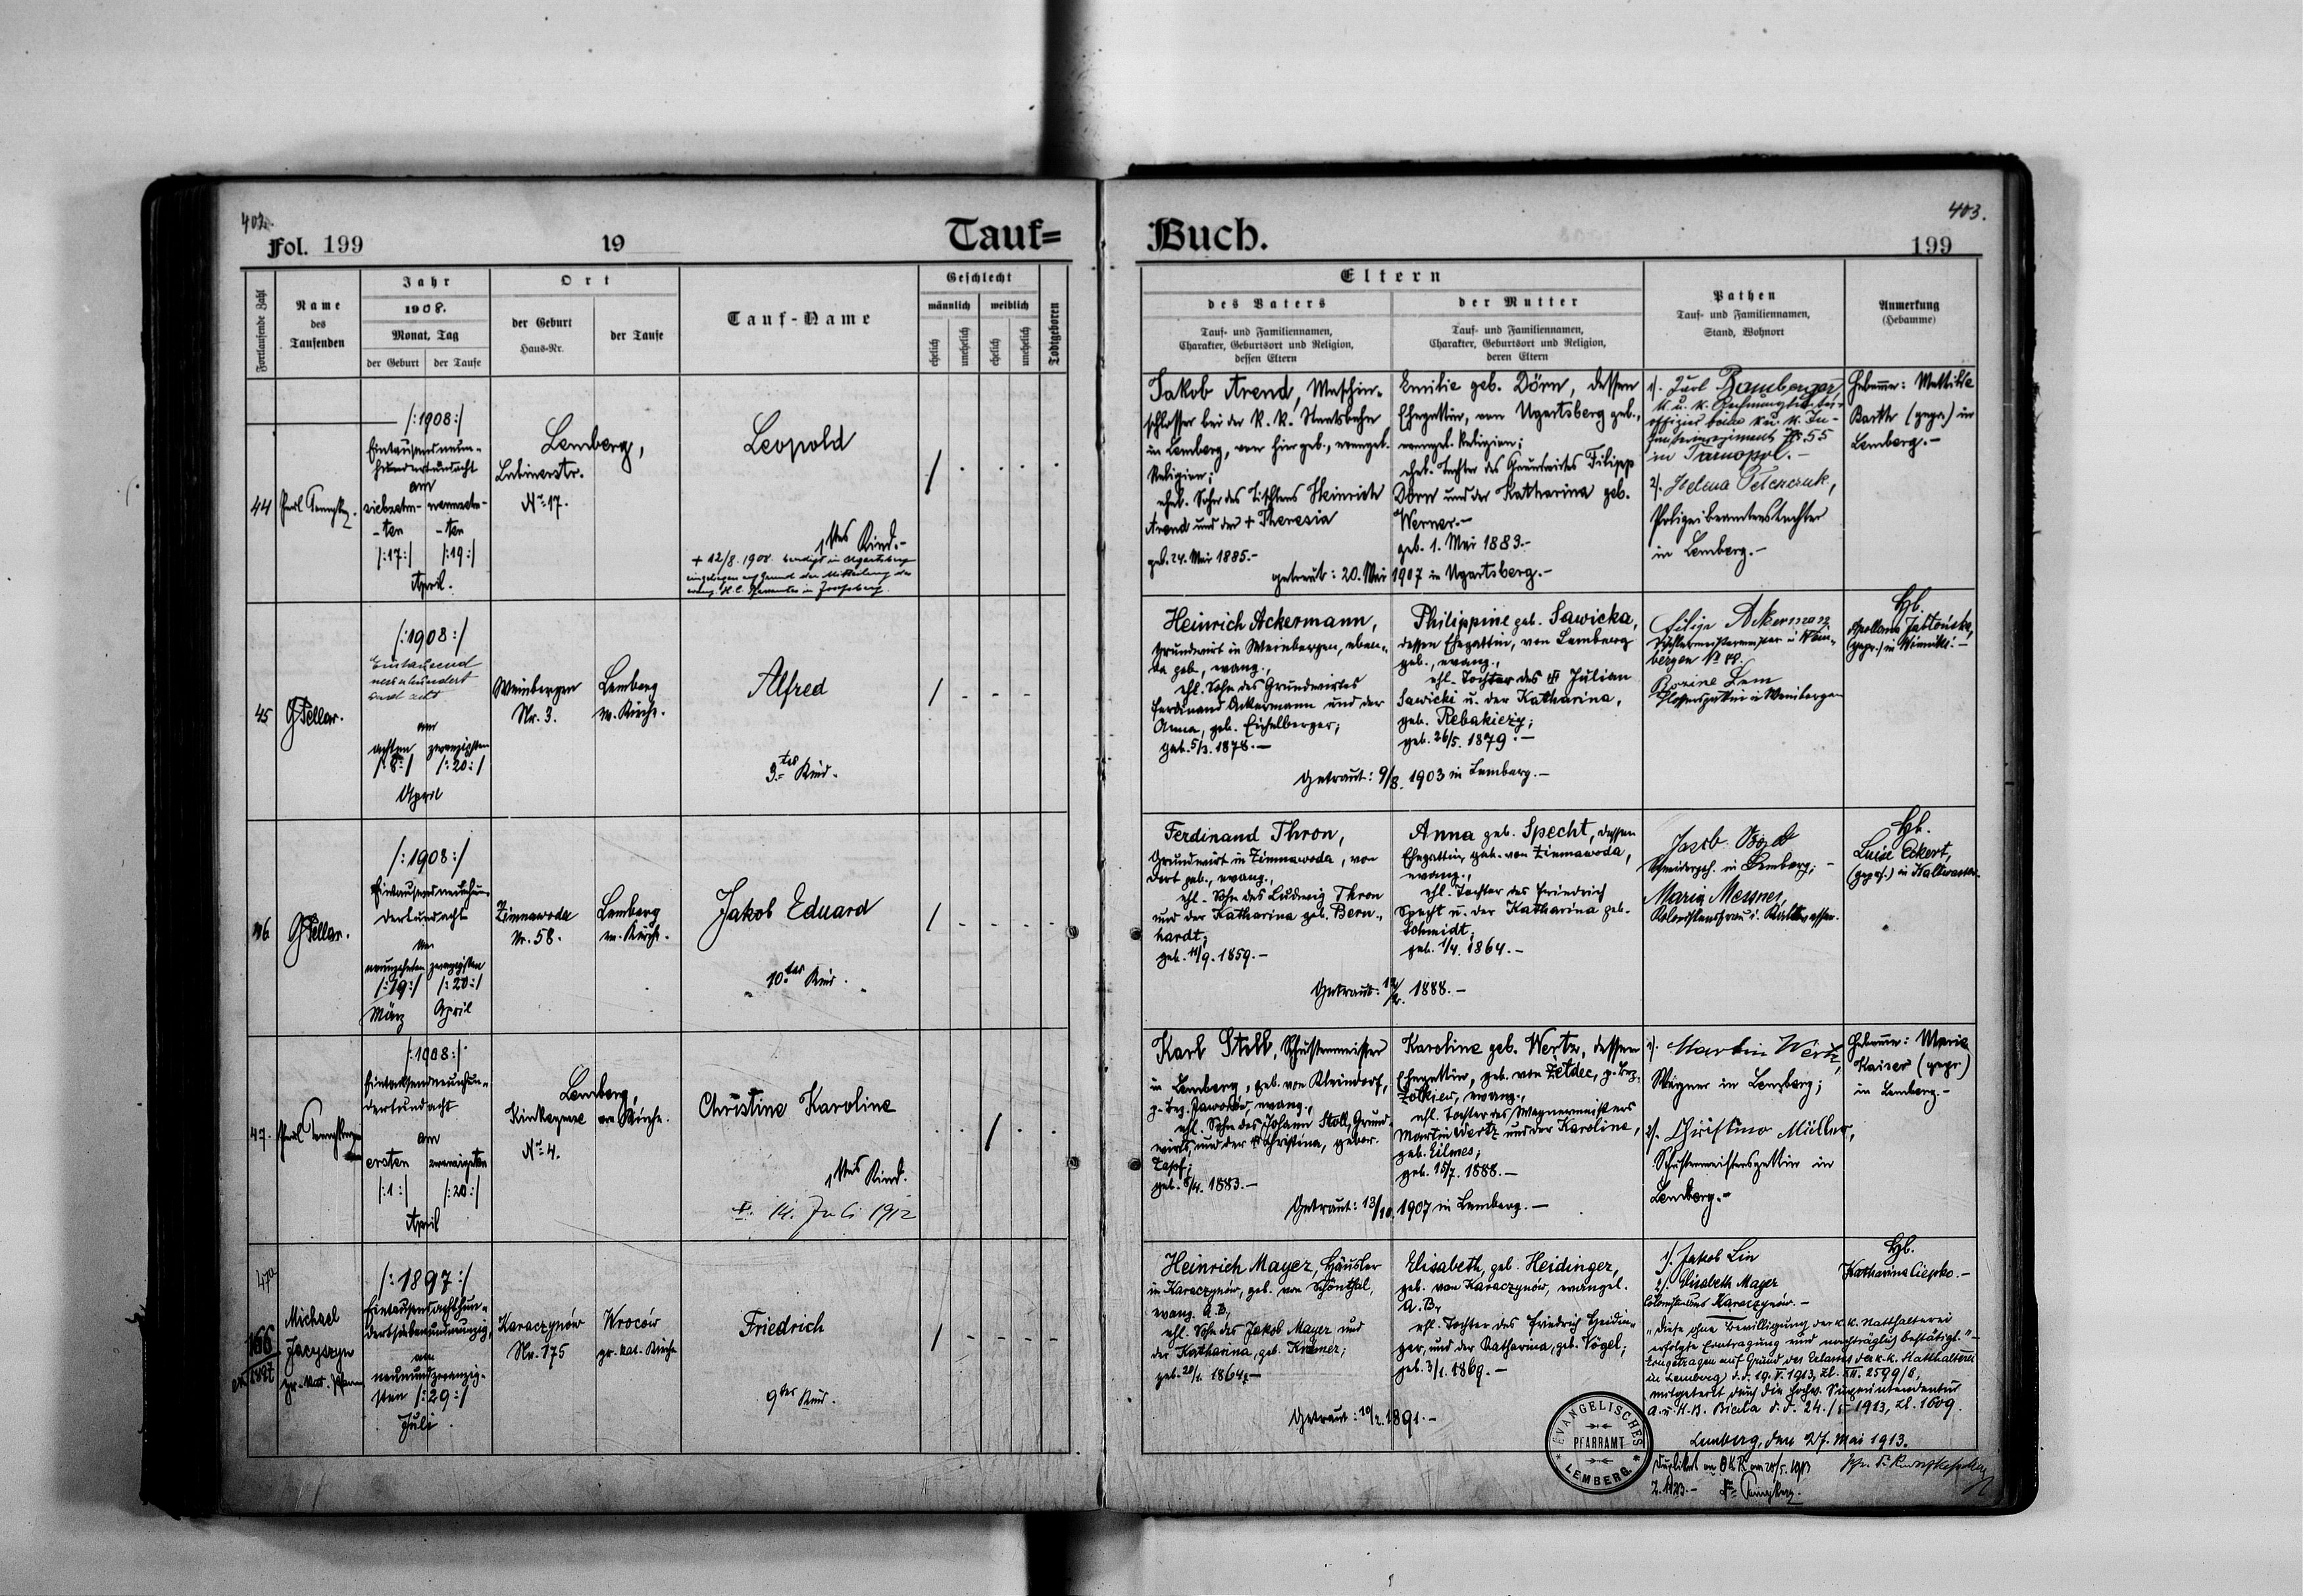 402.
Fol. 199
19
Tauf=
Fortlaufende Zahl
Name
des
Taufenden
Jahr
1908.
Monat, Tag
der Geburt
der Taufe
Ort
der Geburt
Haus-Nr.
der Taufe
Tauf-Name
Geschlecht
männlich
weiblich
ehelich
unehelich
ehelich
unehelich
Todtgeboren
44
/:1908:/
Eintausendneun-
hundertundacht
am
siebzehn- neunzehn-
-ten -ten
/:17:/ /:19:/
April.
Lemberg,
N° 17.
Leopold
1tes Kind.-
+ 12/8. 1908.
45
/:1908:/
Eintausend
neunhundert
und acht
am
achten zwanzigsten
/:8:/ /:20:/
April
Weinbergen
Nr. 3.
Lemberg
ev. Kirche.
Alfred
3.tes Kind.
46
/:1908:/
Eintausendneunhun-
dertundacht
am
neunzehnten zwanzigsten
/:19:/ /:20:/
März April
Zimnawoda
Nr. 58.
Lemberg
ev. Kirche.
Jakob Eduard
10.tes Kind.
47.
/:1908:/
Eintausendneunhun-
dertundacht
am
ersten zwanzigsten
/:1:/ /:20:/
April
Lemberg,
ev. Kirche.
N° 4.
Christine Karoline
1tes Kind.
+. 14. Juli 1912
47a
166
ex 1897
Michael
Jacyszyn
gr.-kat. Pfarrer
/:1897:/
Eintausendachthun-
dertsiebenundneunzig
am
neunundzwanzig-
sten /:29:/
Juli.
Karaczynów
Nr. 175
Wroców
gr. kat. Kirche
Friedrich
9tes Kind.
403.
Buch.
199
Eltern
des Vaters
Tauf- und Familiennamen,
Charakter, Geburtsort und Religion,
dessen Eltern
der Mutter
Tauf- und Familiennamen,
Charakter, Geburtsort und Religion,
deren Eltern
Pathen
Tauf- und Familiennamen,
Stand, Wohnort
Anmerkung
(Hebamme)
Jakob Arend, Maschin-
schlosser bei der k. k. Staatsbahn
in Lemberg, von hier geb., evangel.
Religion;
ehel. Sohn des Tischlers Heinrich
Arend und der + Theresia
geb. 24. Mai 1885.-
Emilie geb. Dörn, dessen
Ehegattin, von Ugartsberg geb.,
evangel. Religion;
ehel. Tochter des Grundwirtes Filipp
Dörn und der Katharina geb.
Werner.-
geb. 1. Mai 1883.-
getraut: 20. Mai 1907 in Ugartsberg.-
1). Karl Bamberger,
k. u. k. Rechnungsunter-
offizier beim k. u. k. In-
fanterieregiment N° 55
in Tarnopol.-
2). Helena
Polizeibeamtenstochter
in Lemberg.-
Hebamme: Mathilde
Barth (gepr.) in
Lemberg.-
Heinrich Ackermann,
Grundwirt in Weinbergen, eben-
da geb., evang.,
ehl. Sohn des Grundwirtes
Ferdinand Ackermann und der
Anna, geb. Eichelberger;
geb. 5/3. 1878.-
Philippine geb. Sawicka,
dessen Ehegattin, von Lemberg
geb., evang.,
ehl. Tochter des + Julian
Sawicki u. der Katharina,
geb. Rebakiezy;
geb. 26/5. 1879.-
Getraut: 9/8. 1903 in Lemberg.-
Filip Akerman
Hb.
Apollonia Jabłońska,
(gepr.) in Winniki.-
Ferdinand Thron,
Grundwirt in Zimnawoda, von
dort geb., evang.,
ehl. Sohn des Ludwig Thron
und der Katharina geb. Bern-
hardt;
geb. 14/9. 1859.-
Anna geb. Specht, dessen
Ehegattin, geb. von Zimnawoda,
evang.,
ehl. Tochter des Friedrich
Specht u. der Katharina geb.
Schmidt;
geb. 1/4. 1864.-
Getraut: 1888.-
in Lemberg;-
Maria Messner,
Hb.
Luise Eckert,
(gepr.) in Kaltwasser.
Karl Stoll, Schustermeister
in Lemberg, geb. von Kleindorf,
evang.,
ehl. Sohn des Johann Stoll, Grund-
wirts, und der + Christina, gebor.
Zapf;
geb. 1883.-
Karoline geb. Wertz, dessen
Ehegattin, geb. von Żełdec, p. Bez.
Żółkiew, evang.,
ehl. Tochter des Wagnermeisters
Martin Wertz und der Karoline,
geb. Eilmes;
geb. 15/7. 1888.-
Getraut: 13/10. 1907 in Lemberg.-
1). Martin Wertz,
Wagner in Lemberg;
2). Christine Müller,
Schustermeistersgattin in
Lemberg.-
Hebamme: Marie
Kaiser (gepr.)
in Lemberg.-
Heinrich Mayer, Häusler
in Karaczynów, geb. von Schönthal,
evang. A.B,
ehl. Sohn des Jakob Mayer und
der Katharina, geb. Krämer;
geb. 20/1. 1864.-
Elisabeth, geb. Heidinger,
geb. von Karaczynów, evangel.
A.B,
ehl. Tochter des Friedrich Heidin-
ger, und der Katharina, geb. Vögel;
geb. 3/1. 1869.-
Getraut: 10/2. 1891.-
1). Jakob Lin
2). Elisabeth Mayer
Karaczynów.-
"diese ohne Bewilligung der k.k. Statthalterei
erfolgte Eintragung wird nachträglich bestätigt."-
Eingetragen auf Grund des Erlasses der k.k. Statthalterei
in Lemberg d.d. 19. V. 1913, Zl. XII. 2599/8,
mitgeteilt durch die hochw. Superintendentur
A. u. H.B. Biala d.d. 24./5 1913, Zl. 1609.
Lemberg, den 27. Mai 1913.
Hb.
Katharina Ciepko.-
EVANGELISCHES
PFARRAMT
LEMBERG